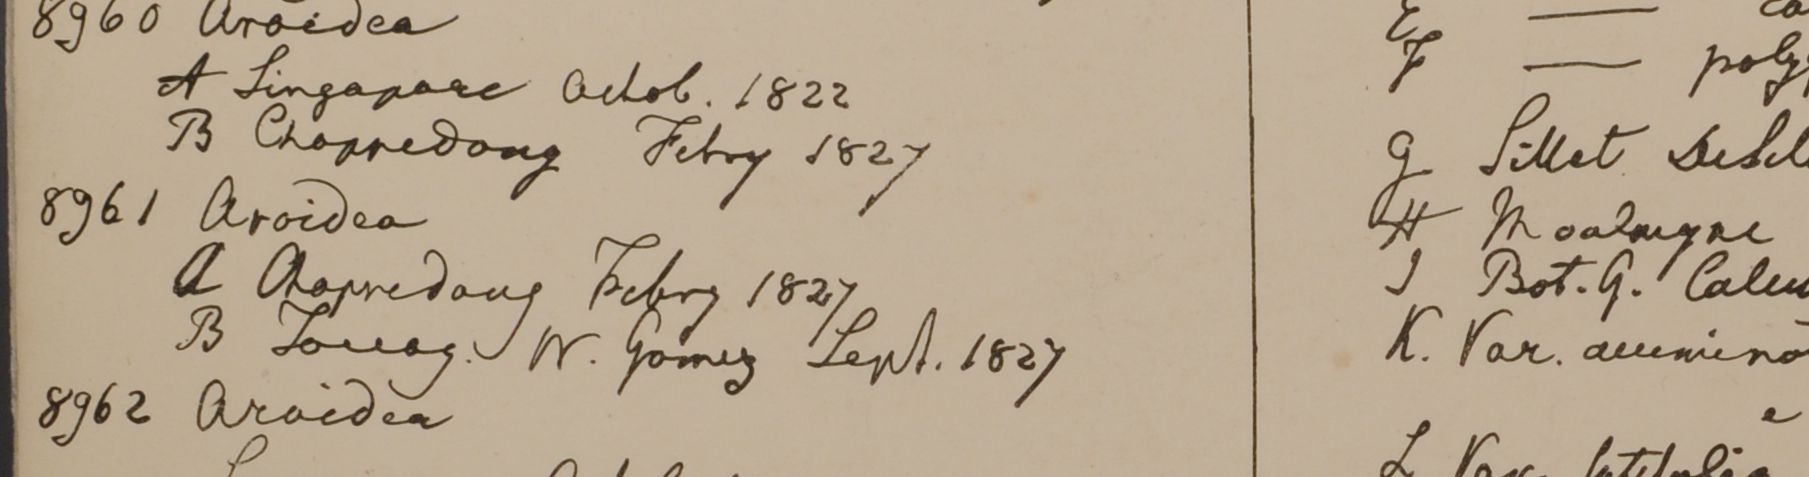 8960 Aroidea
A Singapore Octob. 1822
B Choppedong Febry 1827
8961 Aroidea
A Choppedong Febry 1827
B W. Gomez Sept. 1827
8962 Aroidea
E — 
F — poly
G Sillet DeSil
H Moalmyne
I Bot. G. Calcu
K. Var. acumina
L Var. latifolia